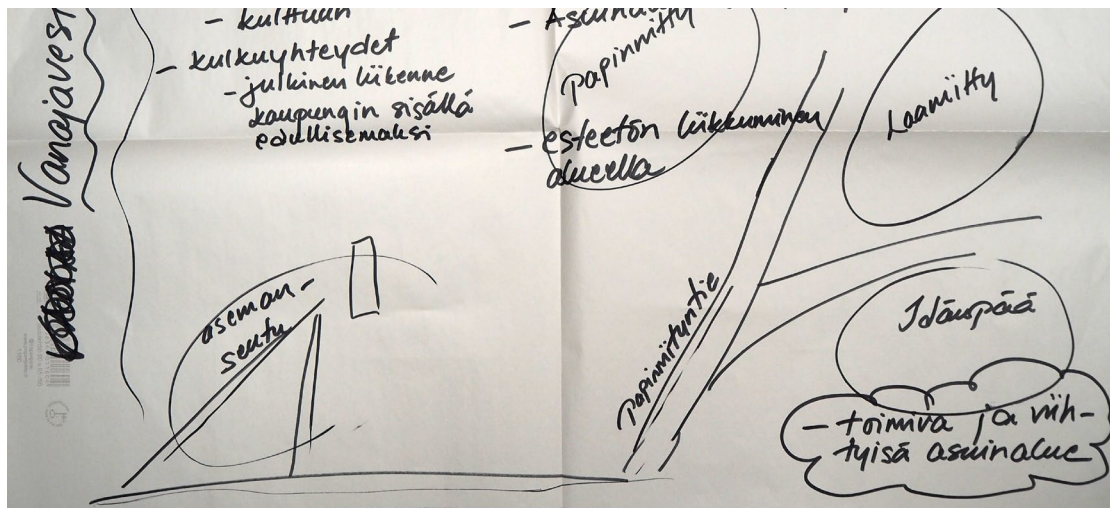 Vanajaves
- kulttuuri
- kulkuyhteydet
- julkinen liikenne
kaupungin sisällä
edullisemaksi
papinniitty
- esteetön liikkuminen
alueella
Laaniitty
aseman-
seutu
papinniityntie
Idänpää
- toimiva ja viih-
tyisä asuinalue